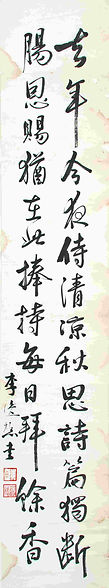 去年今夜侍清涼秋思詩篇獨斷
腸恩賜猶在此捧持每日拜餘香